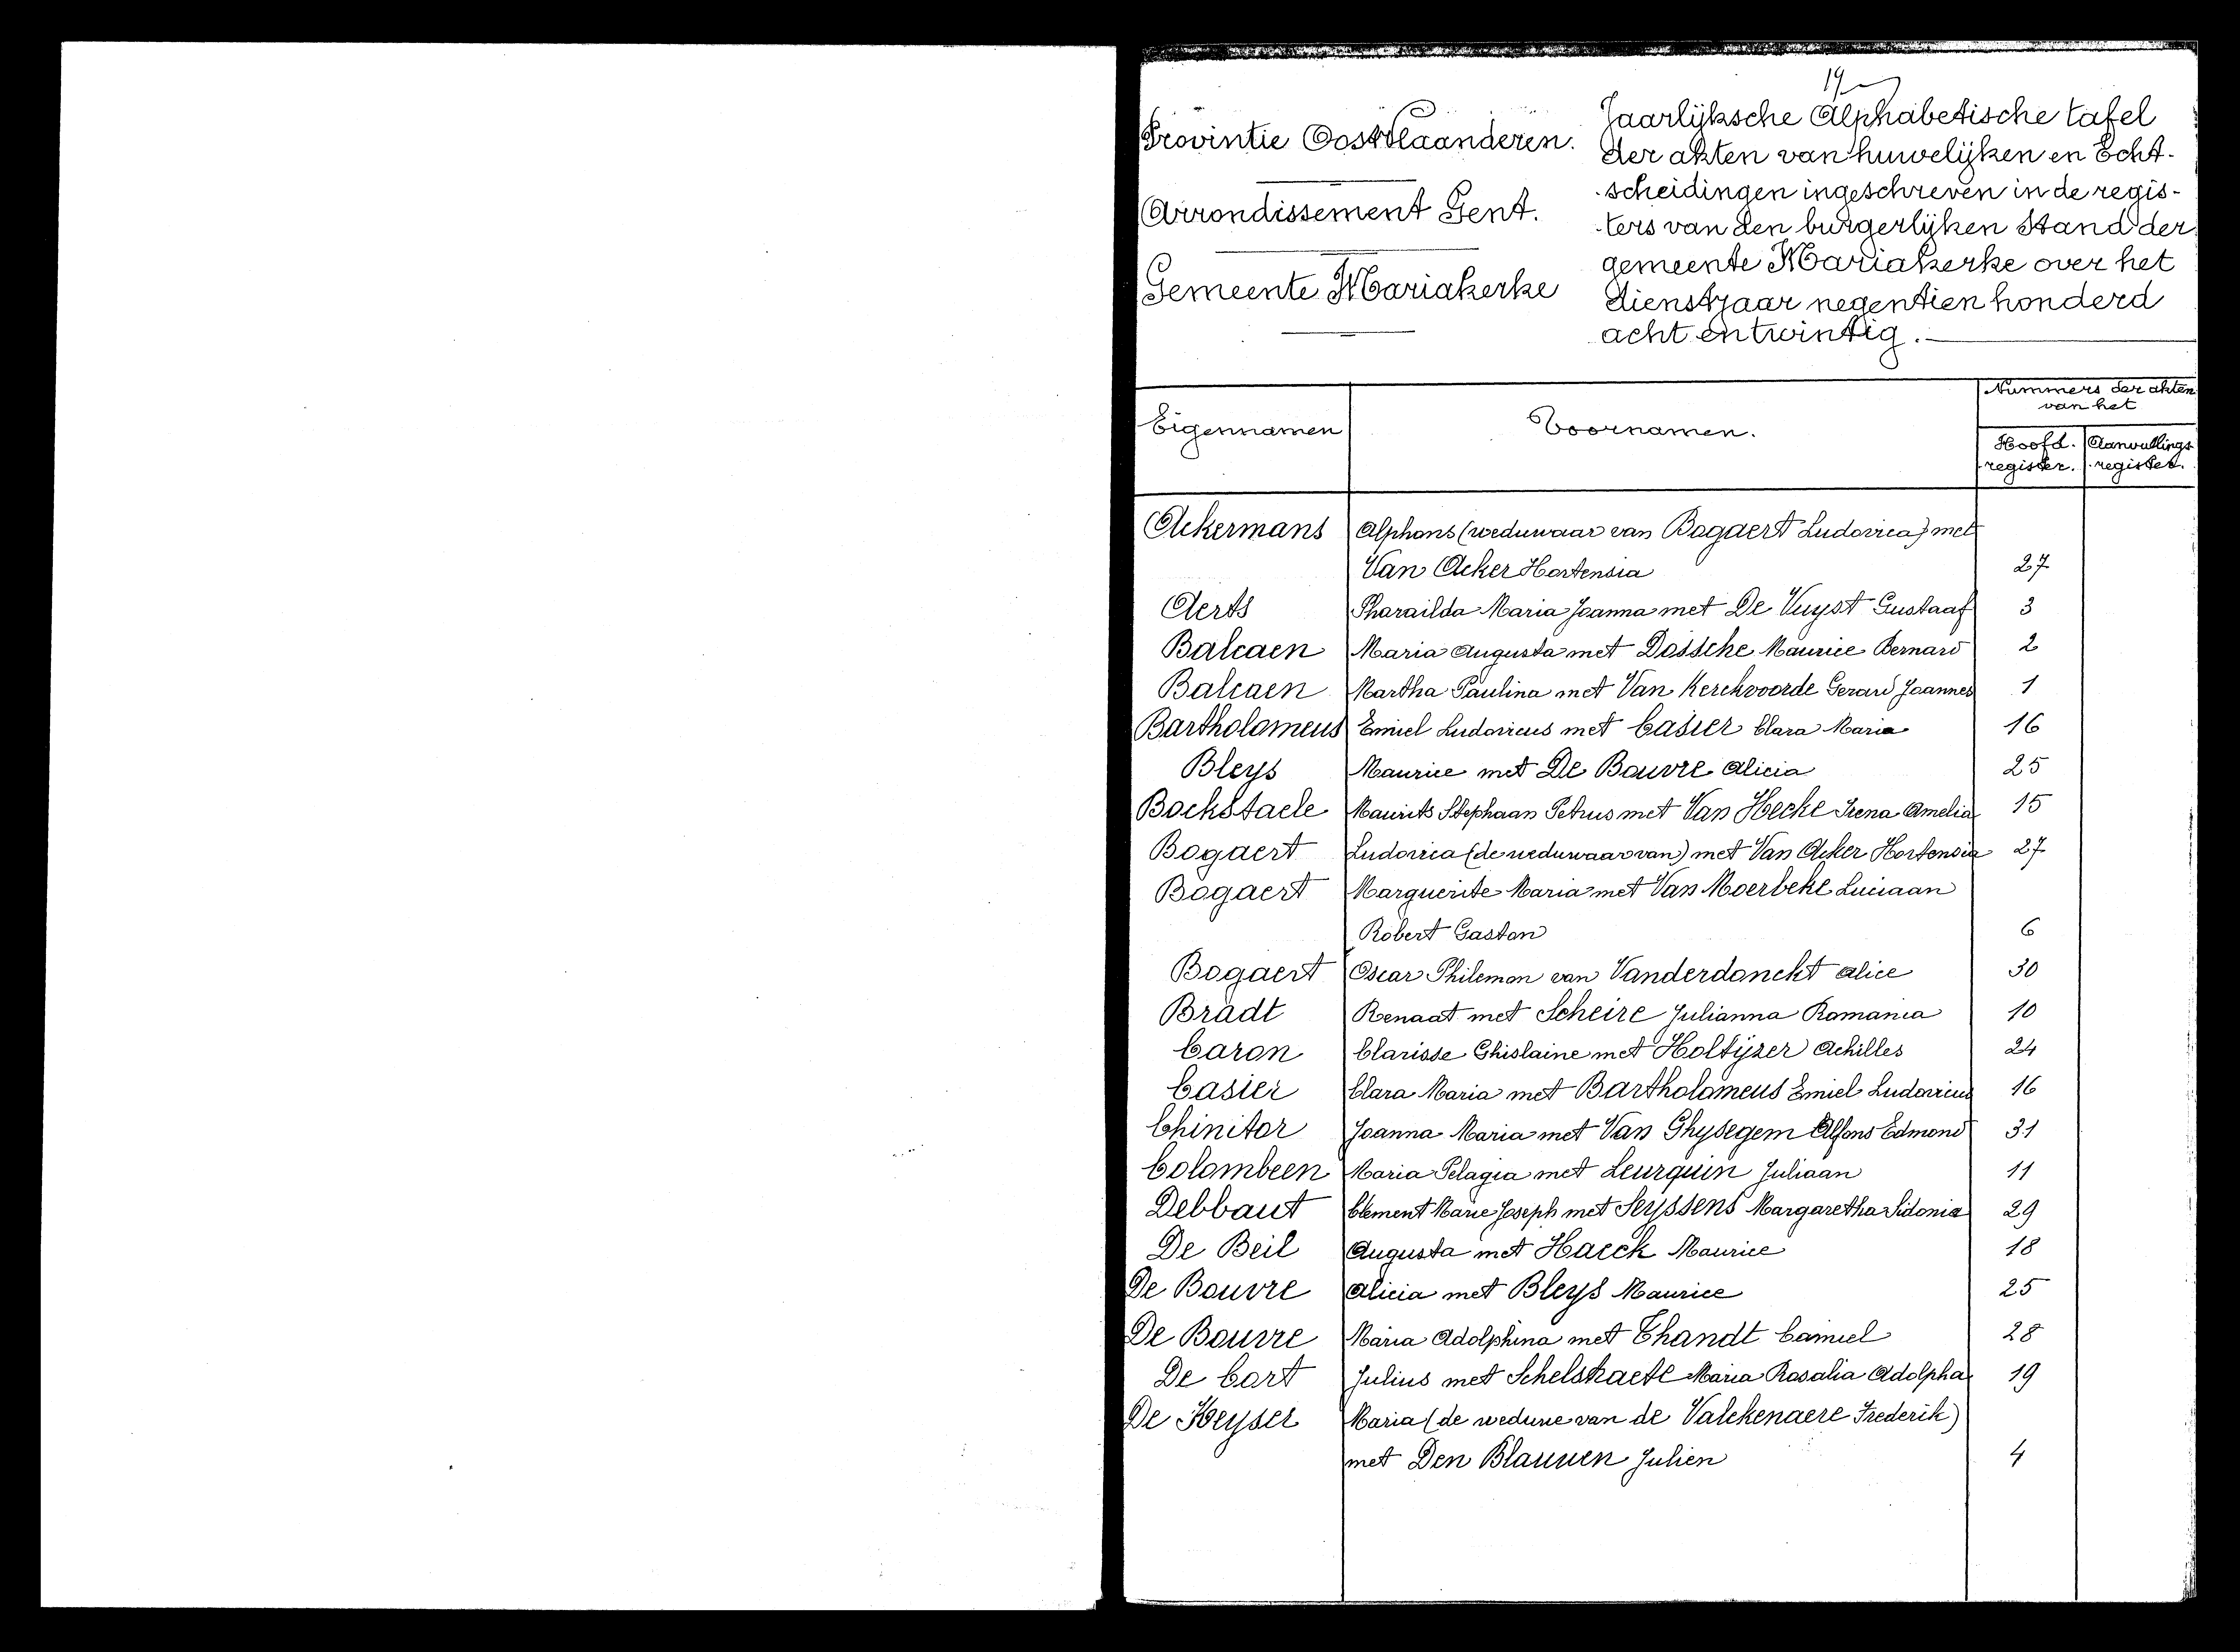 19
Provintie Oostvlaanderen.
Arrondissement Gent.
Gemeente Mariakerke
Jaarlijksche Alphabetische tafel
der akten van huwelijken en Echt-
-scheidingen ingeschreven in de regis-
-ters van den burgerlijken Stand der
gemeente Mariakerke over het
dienstjaar negentien honderd
acht en twintig.
Eigennamen Voornamen. Nummers der akten
van het
Hoofd. Aanvullings
register. register.
Ackermans Alphons (weduwaar van Bogaert Ludovica) met
Van Acker Hortensia 27
Aerts Pharaïlda Maria Joanna met De Vuyst Gustaaf 3
Balcaen Maria Augusta met Dossche Maurice Bernard 2
Balcaen Martha Paulina met Van Kerckvoorde Gerard Joannes 1
Bartholomeus Emiel Ludovicus met Casier Clara Maria 16
Bleys Maurice met De Bouvre Alicia 25
Bockstaele Maurits Stephaan Petrus met Van Hecke Irena Amelia 15
Bogaert Ludovica (de weduwaar van) met Van Acker Hortensia 27
Bogaert Marguerite Maria met Van Moerbeke Luciaan
Robert Gaston 6
Bogaert Oscar Philemon van Vanderdonckt Alice 30
Bradt Renaat met Scheire Julianna Romania 10
Caron Clarisse Ghislaine met Holtijzer Achilles 24
Casier Clara Maria met Bartholomeus Emiel Ludovicus 16
Chinitor Joanna Maria met Van Ghysegem Alfons Edmond 31
Colombeen Maria Pelagia met Leurquin Juliaan 11
Debbaut Clement Marie Joseph met Seyssens Margaretha Sidonia 29
De Beil Augusta met Haeck Maurice 18
De Bouvre Alicia met Bleys Maurice 25
De Bouvre Maria Adolphina met Thandt Camiel 28
De Cort Julius met Schelstraete Maria Rosalia Adolpha 19
De Keyser Maria (de weduwe van de Valckenaere Frederik)
met Den Blauwen Julien 4